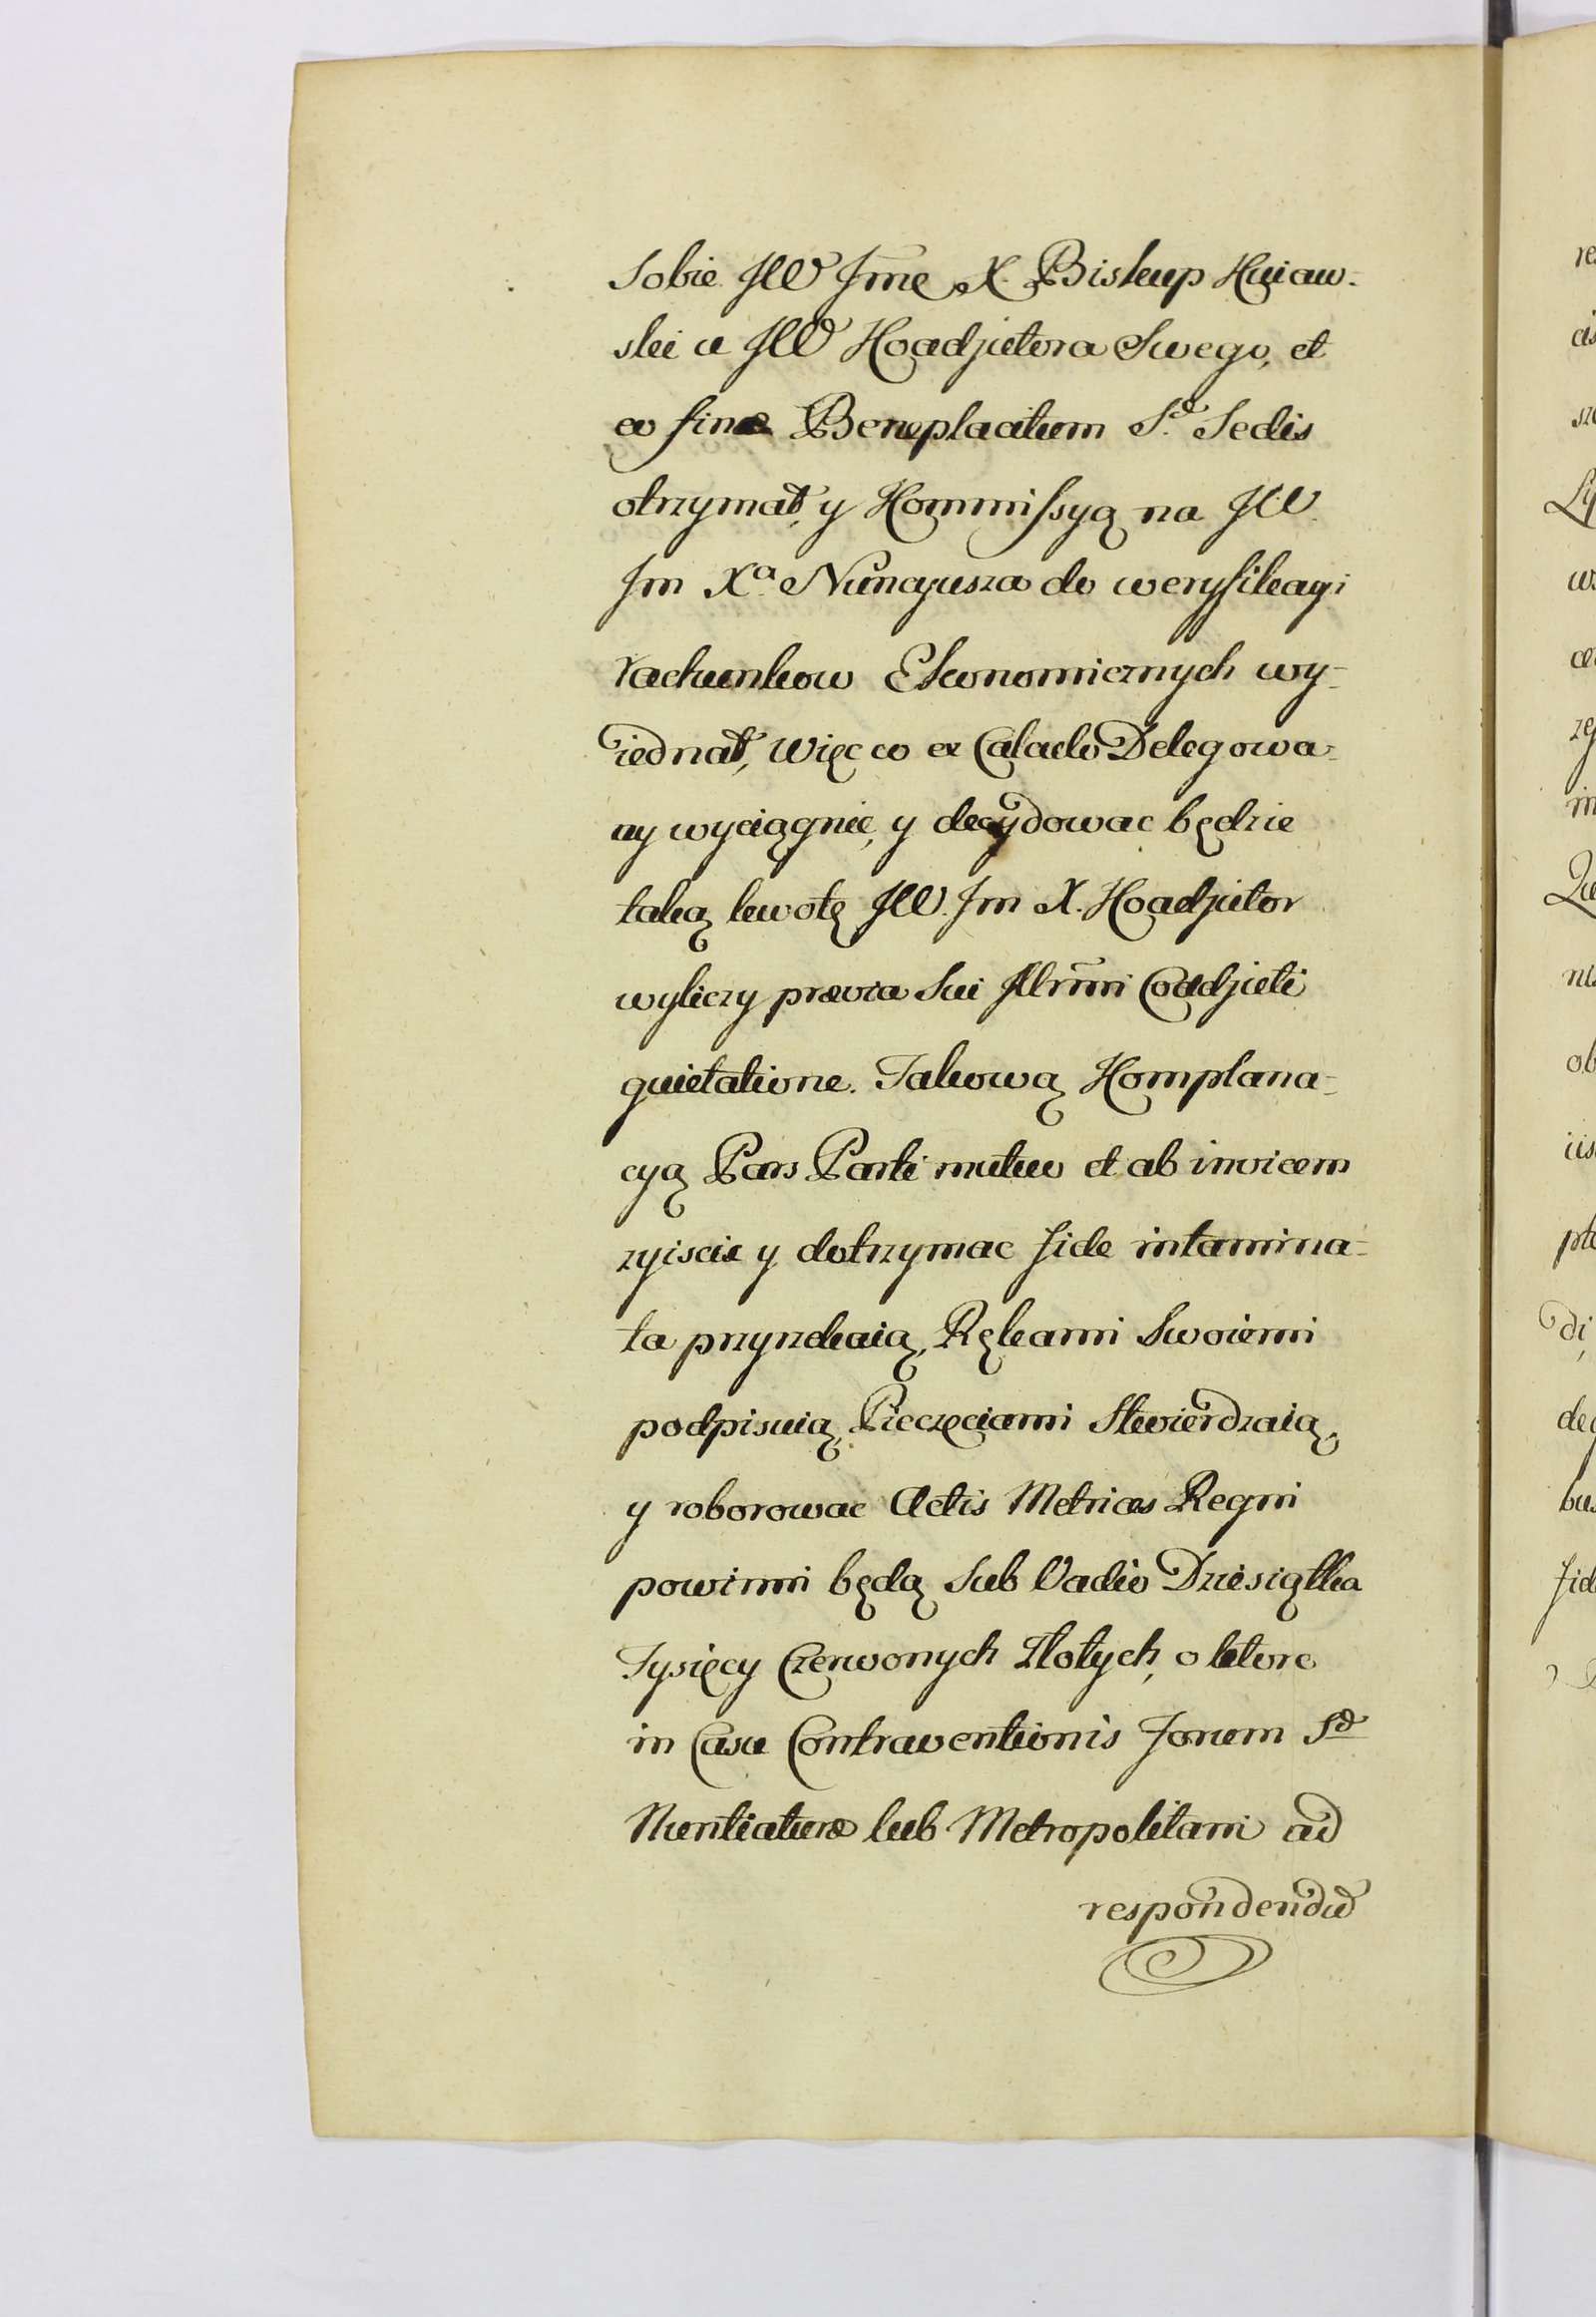 Sobie JW Jmc X. Biskup Kuiaw-
ski u JW Koadjutora Swego, et
eo fine Beneplacitum S.æ Sedis
otrzymał, y Kommissyą na JW
Jm Xa. Nuncyusza do weryfikacyi
rachunkow Ekonomicznych wy-
iednał, Więc co ex Calculo Delegowa-
ny wyciągnie, y decydowac będzie
taką kwotę JW. Jm X. Koadjutor
wyliczy prævia Sui Illrmi Coadjuti
quietatione. Takową Komplana-
cyą Pars Parti mutuo et ab invicem
zyiscic y dotrzymac fide intamina-
ta przyrzekaią, Rękami Swoiemi
podpisuią, Pieczęciami Stwierdzaią,
y roborowac Actis Metrices Regni
powinni będą Sub Vadio Dziesiątka
Tysięcy Czerwonych Złotych, o ktore
in Casu Contraventionis Forum Sæ
Nuntiaturæ lub Metropolitani ad
respondendũ